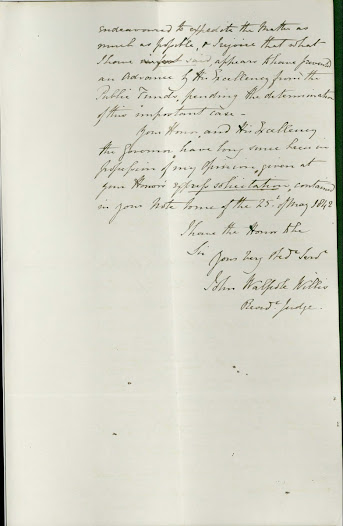 endeavoured to expedite the Matter as
much as possible, & rejoice that what
I have said, appears to have
an Advance by His Excellency from the
Public Funds, pending the determination
of this important case –
Your Honor, and His Excellency
the Governor have long since been in
possession of my Opinion, given at
your Honors express solicitation, contained
in your Note to me of the 25th of May 1842
I have the Honor to be
Sir
Your very Obedt Servt
John Walpole Willis
Residt Judge.